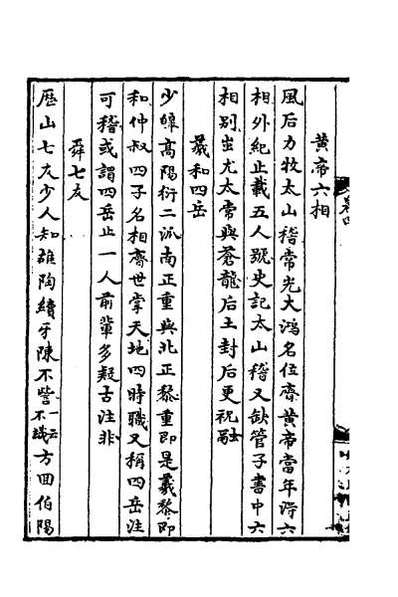 黄帝六相
風后力牧太山稽帝光大鴻名位齊黄帝當年得六
相外紀止載五人號史記太山稽又缺管子書中六
相别出尤太常與蒼龍后土封后更祝融
羲和四岳
少皞高陽衍二派南正重與北正黎重即是羲黎即
和仲叔四子名相齊世掌天地四時職又稱四岳注
可稽或謂四岳止一人前輩多疑古注非
舜七友
歴山七友少人知雄陶續牙陳不訾一云不識方回伯陽